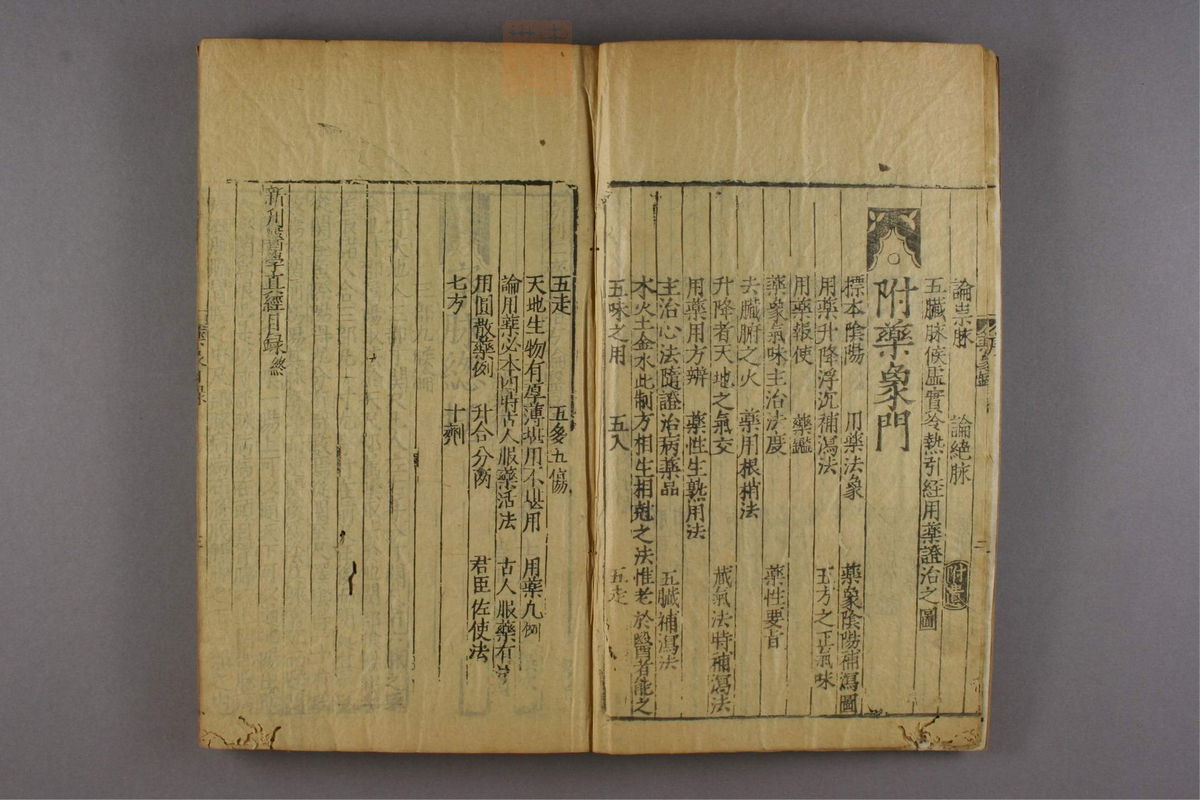 論祟脉　論絕脉
五臟脉候虛實冷熱引經用藥證治之圖
附藥象門
標本陰陽　用藥法象　藥象陰陽補瀉圖
用藥升降浮沉補瀉法　五方之正氣味
用藥報使　藥鑑
藥象氣味主治法度　藥性要旨
去臟腑之火　藥用根梢法
升降者天地之氣交　藏氣法時補瀉法
用藥用方辨　藥性生熟用法
主治心法隨證治病藥品　五臟補瀉法
水火土金水此制方相生相尅之法惟老於醫者能之
五味之用　五入　五走
五走　五多五傷
天地生物有厚薄堪用不堪用　用藥凡例
論用藥必本四時古人服藥活法　古人服藥有法
用圓散藥例　升合分兩　君臣佐使法
七方　十劑
新刋醫學真經目録終